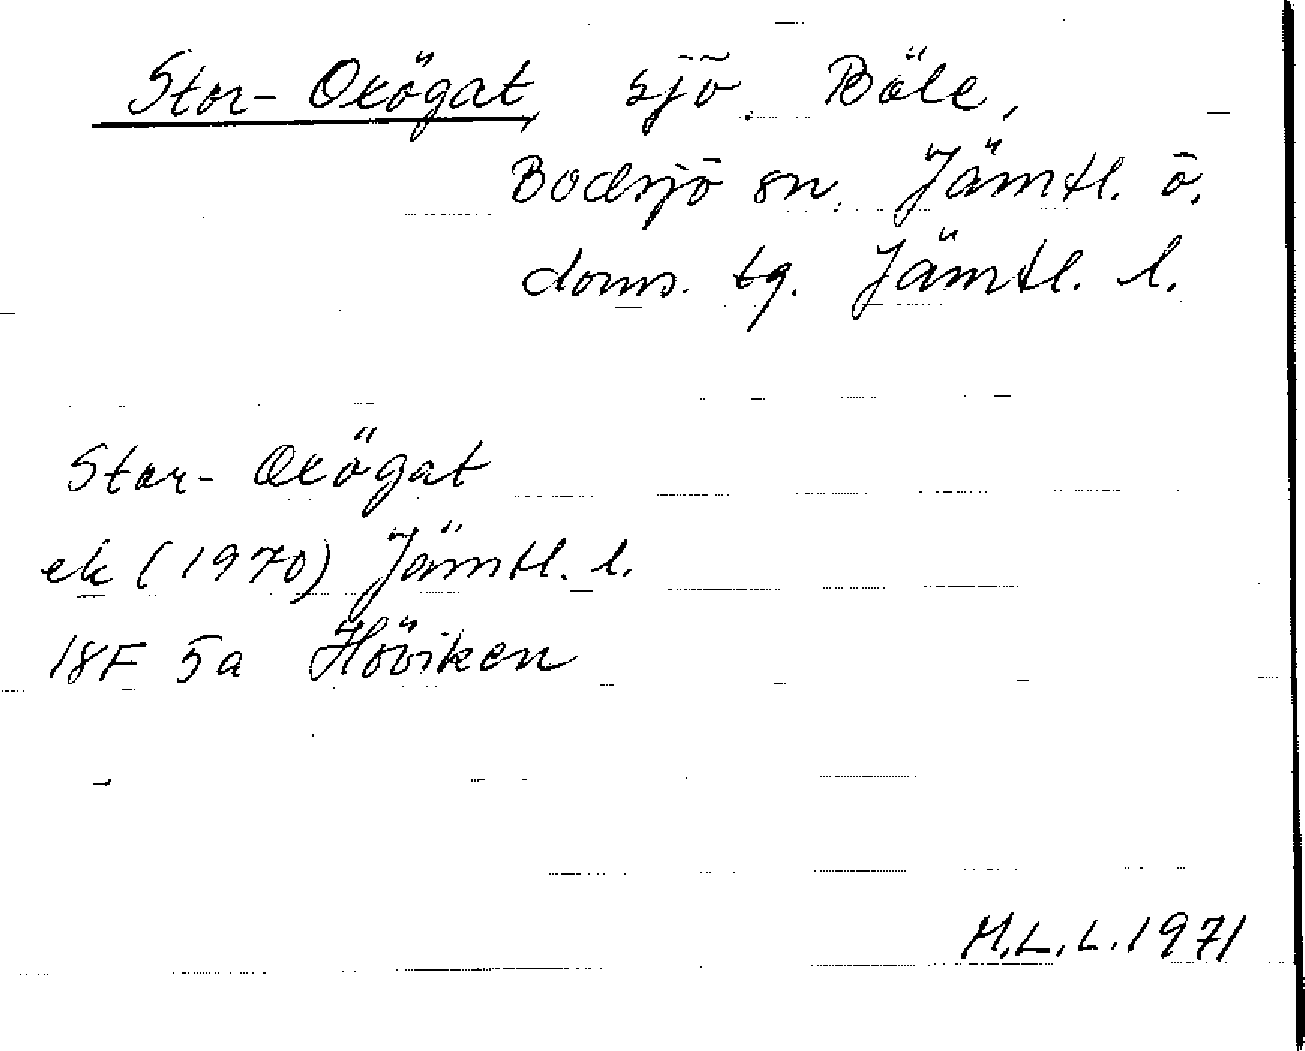 Stor-Oxögat, sjö. Böle,
Bodsjö sn. Jämtl. ö.
doms. tg. Jämtl. l.
Stor-Oxögat
ek (1970) Jämtl. l.
18F 5a Höviken
M.L.L. 1971